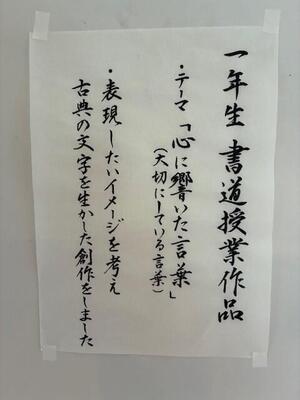 一年生 書道授業作品
・テーマ「心に響いた言葉」
（大切にしている言葉）
・表現したいイメージを考え
古典の文字を生かした創作をしました